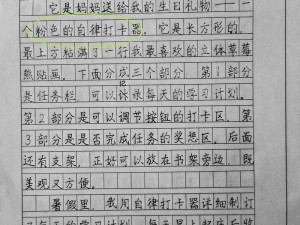 它是妈妈送给我的生日礼物——一
个粉色的自律打卡器。它是长方形的。
最上方粘满了一行我最喜欢的立体草莓
熊贴画。下面分成三个部分。第1部分
是任务栏，可以记录每天的学习计划。
第2部分是可以调节按钮的打卡区。第
3部分是是否完成任务的奖惩区。后面
还有支架，正好可以放在书架旁边，既
美观又方便。
暑假里，我用自律打卡器详细制订
了每天的学习计划。每天早上起床后